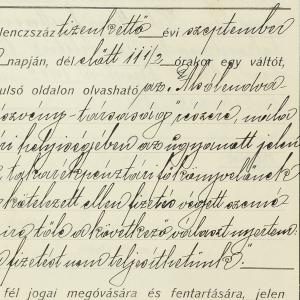 lenczszáz tizenkettő évi szeptember
napján, dél előtt 11 1/2 órakor egy váltót,
ulsó oldalon olvasható az „Alsólendva-
részvény-társaság" részére, nálo
helyiségében az ugyanott jelen
takarékpénztári főkönyvelőnek
kötelezett ellen fizetés végett szemé
tőle a következő választ nyertem:
fizetést nem teljesíthetünk."
fél jogai megóvására és fentartására, jelen